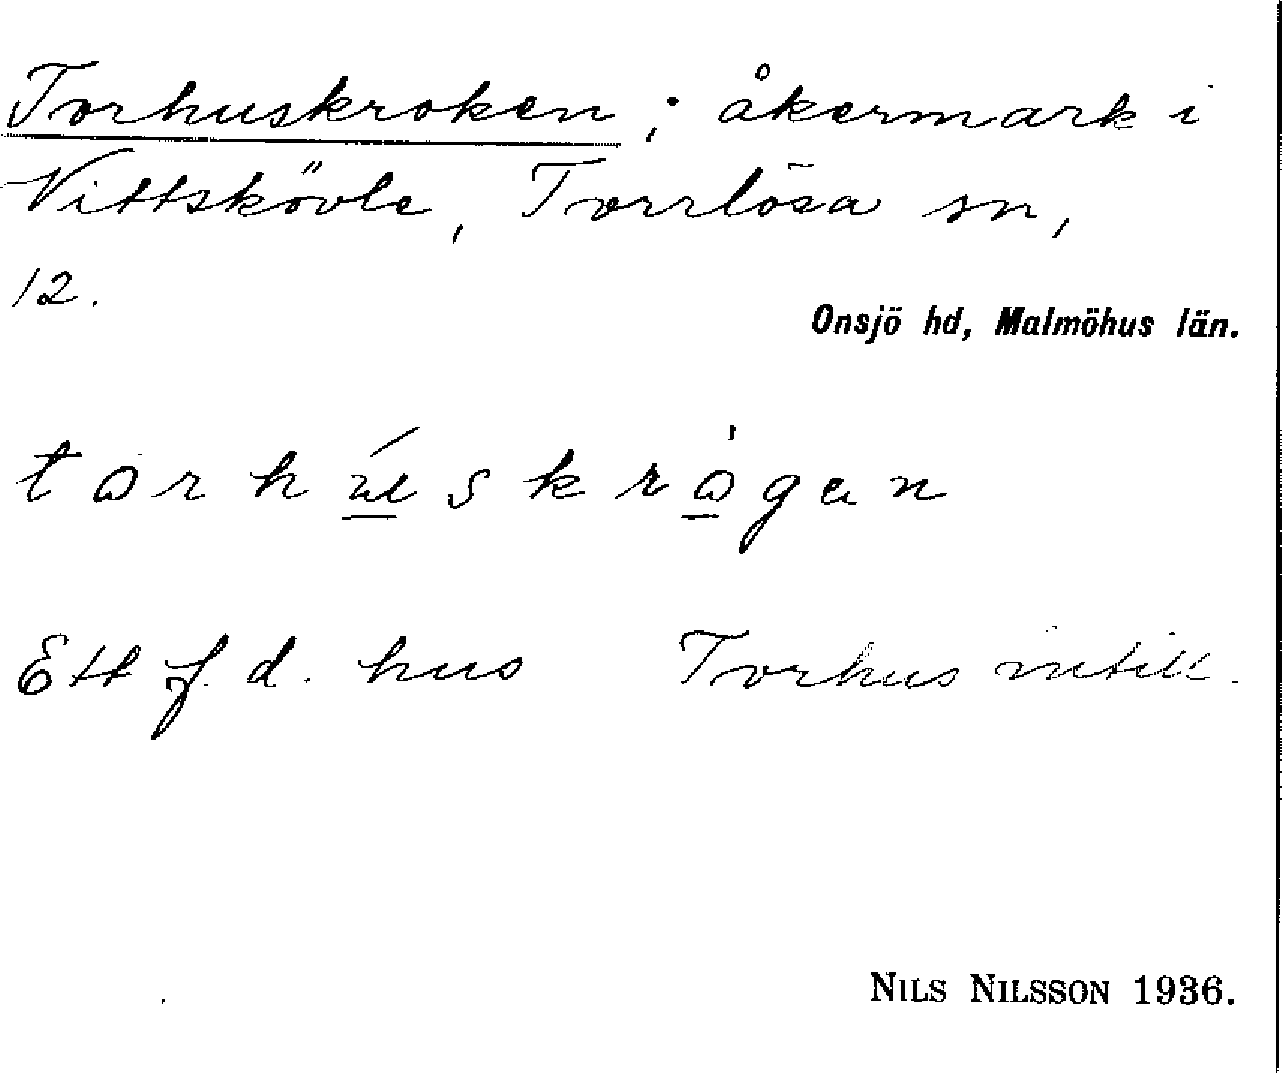 Torhuskroken; åkermark i
Vittskövle, Torrlösa sn,
12.
Onsjö hd, Malmöhus län.
torhúskrògan
Ett f. d. hus Torhus intill.
NILS NILSSON 1936.